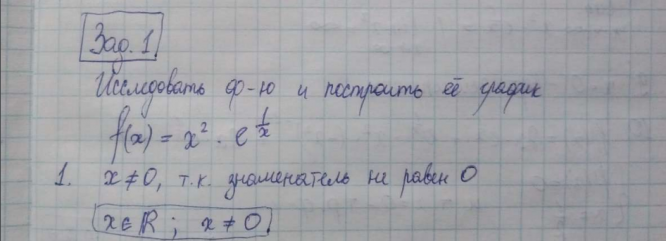 Зад. 1
Исследовать ф-ю и построить её график
f(x) = x² · e^{1/x}
1. x ≠ 0, т.к. знаменатель не равен 0
x ∈ ℝ ; x ≠ 0